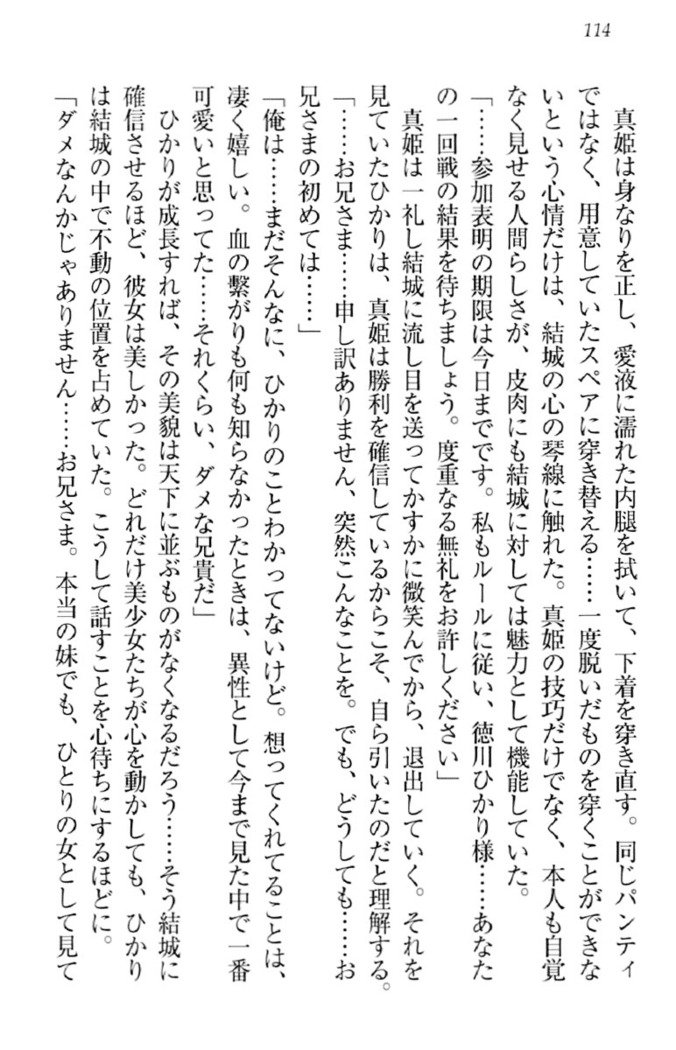 114
真姫は身なりを正し、愛液に濡れた内腿を拭いて、下着を穿き直す。同じパンティ
ではなく、用意していたスペアに穿き替える……一度脱いだものを穿くことができな
いという心情だけは、結城の心の琴線に触れた。真姫の技巧だけでなく、本人も自覚
なく見せる人間らしさが、皮肉にも結城に対しては魅力として機能していた。
「……参加表明の期限は今日までです。私もルールに従い、徳川ひかり様……あなた
の一回戦の結果を待ちましょう。度重なる無礼をお許しください」
真姫は一礼し結城に流し目を送ってかすかに微笑んでから、退出していく。それを
見ていたひかりは、真姫は勝利を確信しているからこそ、自ら引いたのだと理解する。
「……お兄さま……申し訳ありません、突然こんなことを。でも、どうしても……お
兄さまの初めては……」
「俺は……まだそんなに、ひかりのことわかってないけど。想ってくれてることは、
凄く嬉しい。血の繋がりも何も知らなかったときは、異性として今まで見た中で一番
可愛いと思ってた……それくらい、ダメな兄貴だ」
ひかりが成長すれば、その美貌は天下に並ぶものがなくなるだろう……そう結城に
確信させるほど、彼女は美しかった。どれだけ美少女たちが心を動かしても、ひかり
は結城の中で不動の位置を占めていた。こうして話すことを心待ちにするほどに。
「ダメなんかじゃありません……お兄さま。本当の妹でも、ひとりの女として見て